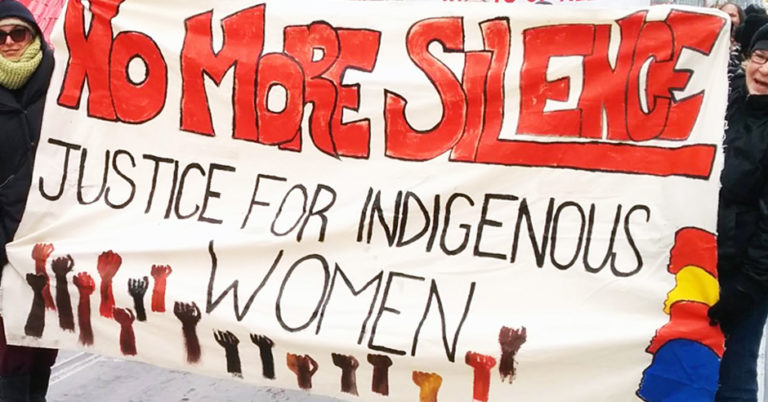 NO MORE SILENCE
JUSTICE FOR INDIGENOUS
WOMEN